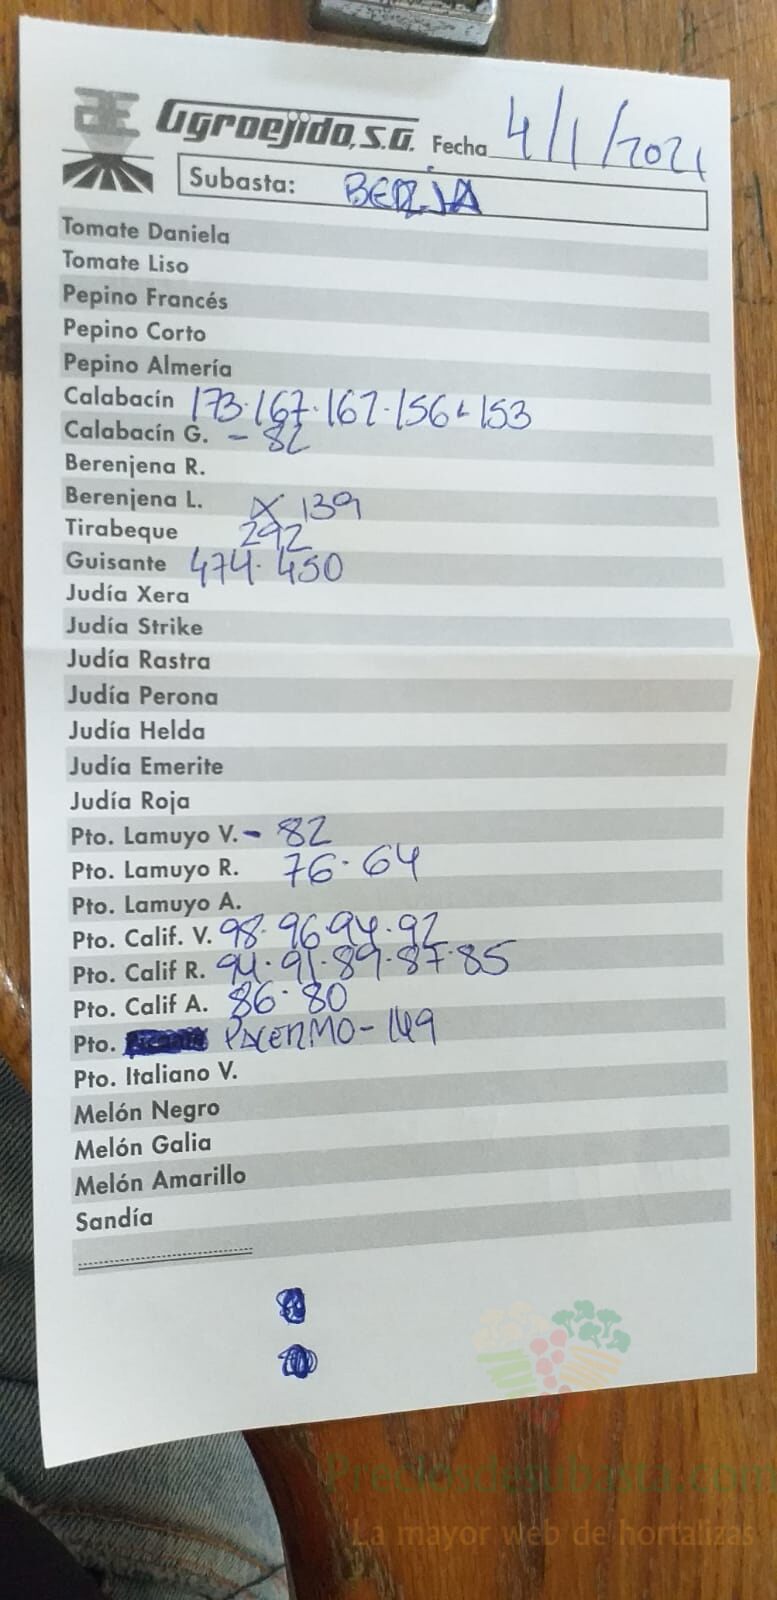 Agroejido, S.A. Fecha 4/1/2021
Subasta: BERJA
Tomate Daniela
Tomate Liso
Pepino Francés
Pepino Corto
Pepino Almería
Calabacín 173·167·162·156·153
Calabacín G. - 82
Berenjena R.
Berenjena L. X 139
Tirabeque 292
Guisante 474·450
Judía Xera
Judía Strike
Judía Rastra
Judía Perona
Judía Helda
Judía Emerite
Judía Roja
Pto. Lamuyo V. - 82
Pto. Lamuyo R. 76·64
Pto. Lamuyo A.
Pto. Calif. V. 98·96·94·92
Pto. Calif R. 94·91·89·87·85
Pto. Calif A. 86·80
Pto. PALERMO - 149
Pto. Italiano V.
Melón Negro
Melón Galia
Melón Amarillo
Sandía
Preciosdesubasta.com
La mayor web de hortalizas